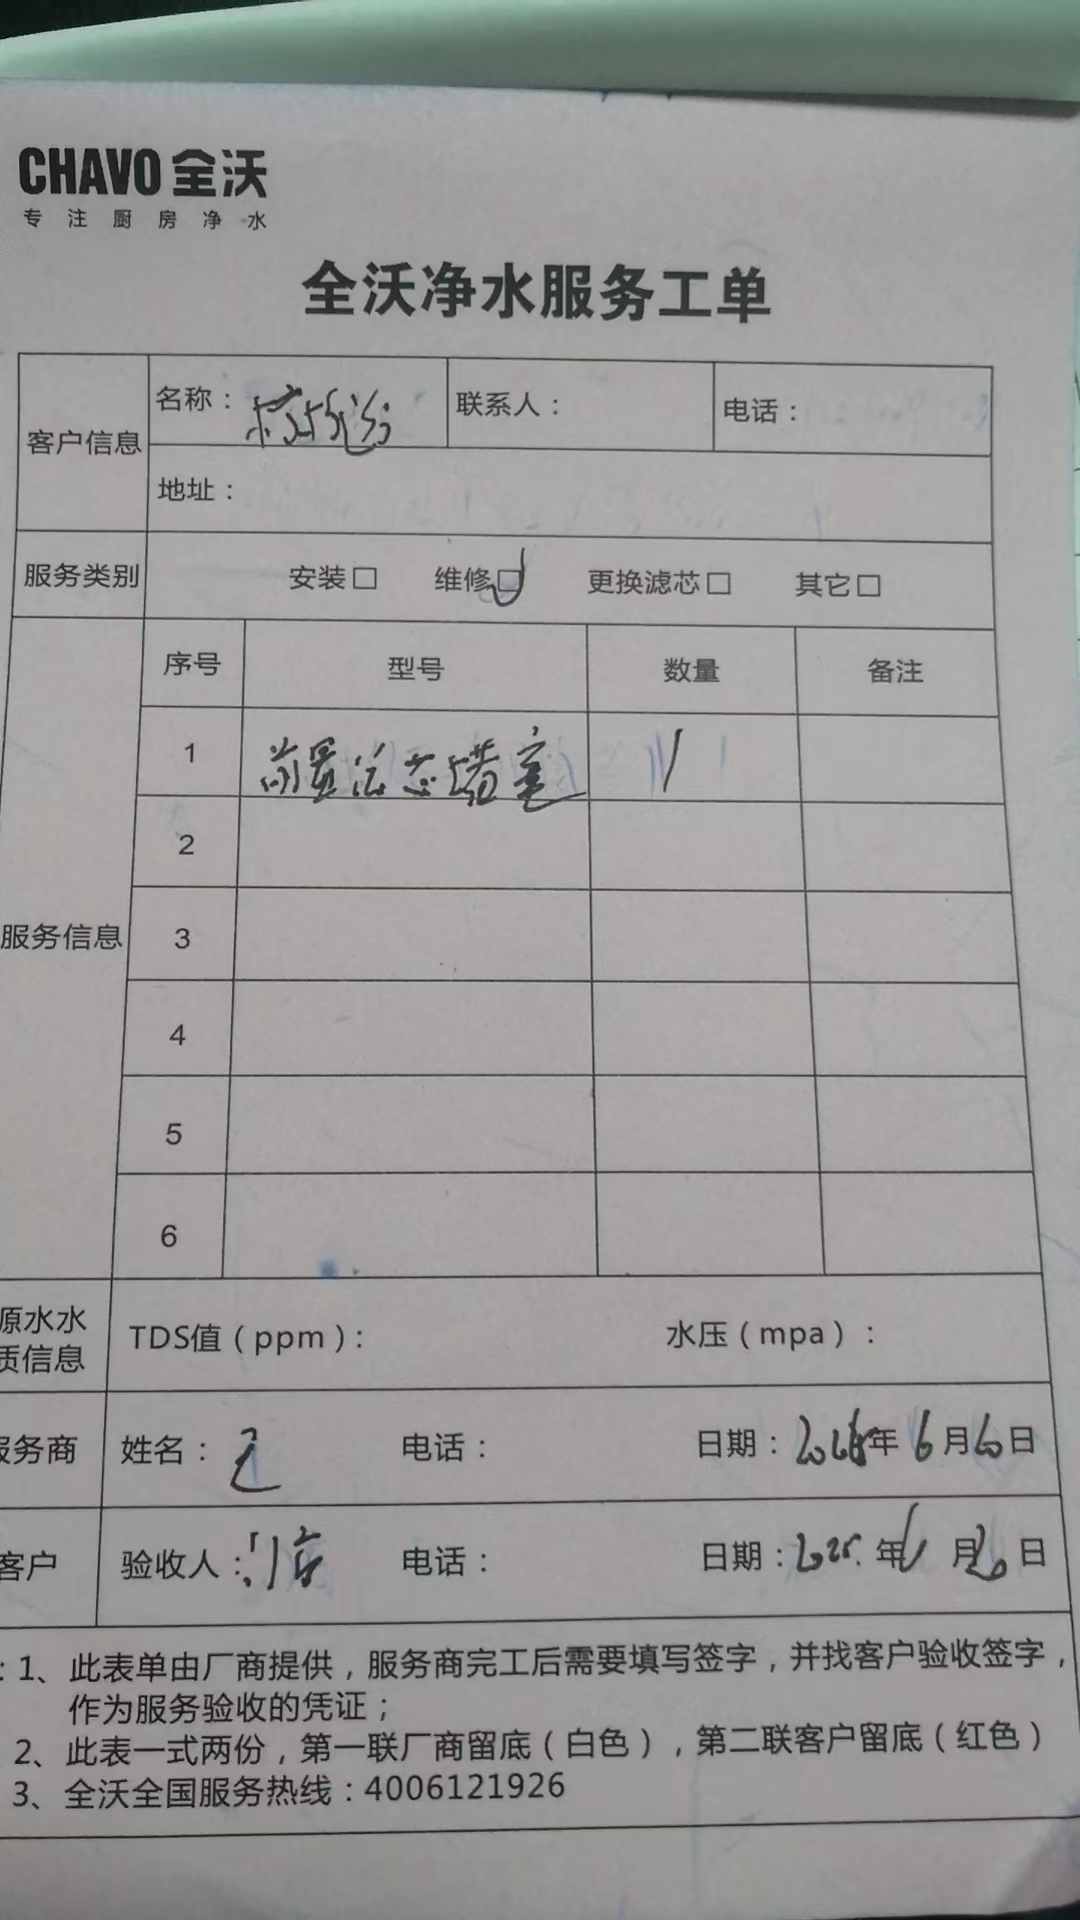 CHAVO 全沃
专注厨房净水
全沃净水服务工单
客户信息 名称： 联系人： 电话：
地址：
服务类别 安装□ 维修□ 更换滤芯□ 其它□
服务信息
序号 型号 数量 备注
1 前置滤芯堵塞 1
2
3
4
5
6
源水水质信息 TDS值（ppm）： 水压（mpa）：
服务商 姓名：王 电话： 日期： 年6月20日
客户 验收人： 电话： 日期：2025.年6月20日
：1、此表单由厂商提供，服务商完工后需要填写签字，并找客户验收签字，
作为服务验收的凭证；
2、此表一式两份，第一联厂商留底（白色），第二联客户留底（红色）
3、全沃全国服务热线：4006121926